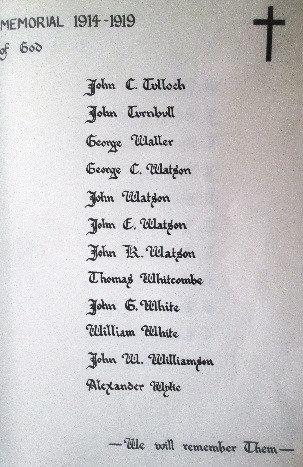 MEMORIAL 1914-1919
of God
John C. Tulloch
John Turnbull
George Waller
George C. Watson
John Watson
John E. Watson
John R. Watson
Thomas Whitcombe
John G. White
William White
John W. Williamson
Alexander Wylie
—We will remember Them—